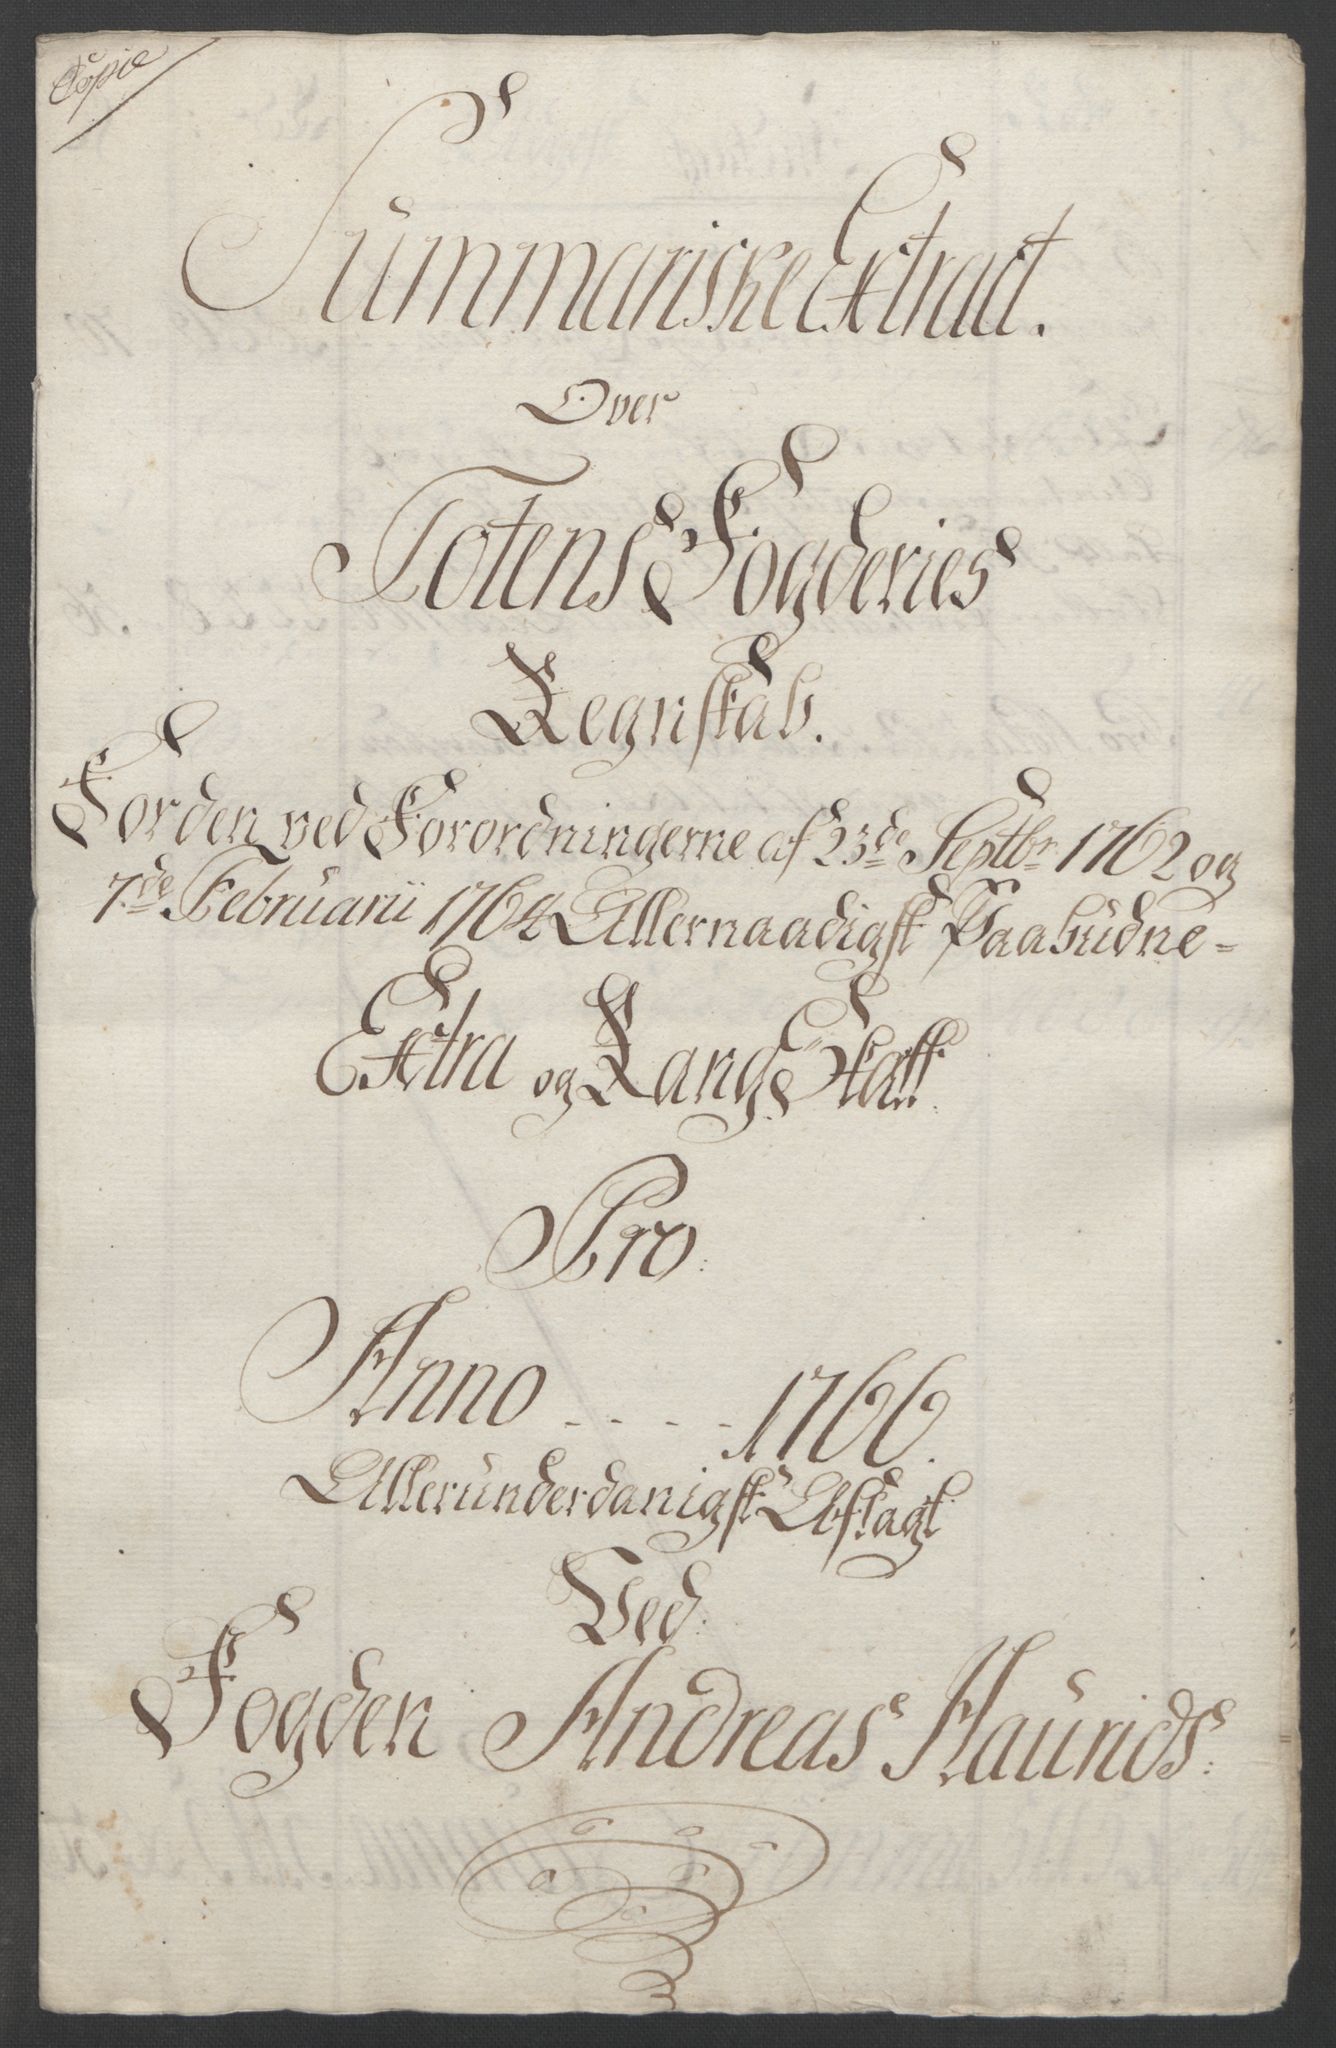 Copie
Summariske Extract.
Over
Totens Fogderies
Regnskab.
For den ved Forordningerne af 23de Septbr 1762 og
7de Februarii 1764 Allernaadigst Paabudne-
Extra og Rang Skatt.
Pro.
Anno - - - - 1766.
Allerunderdanigst Aflagt
Ved.
Fogden Andreas Haurids.